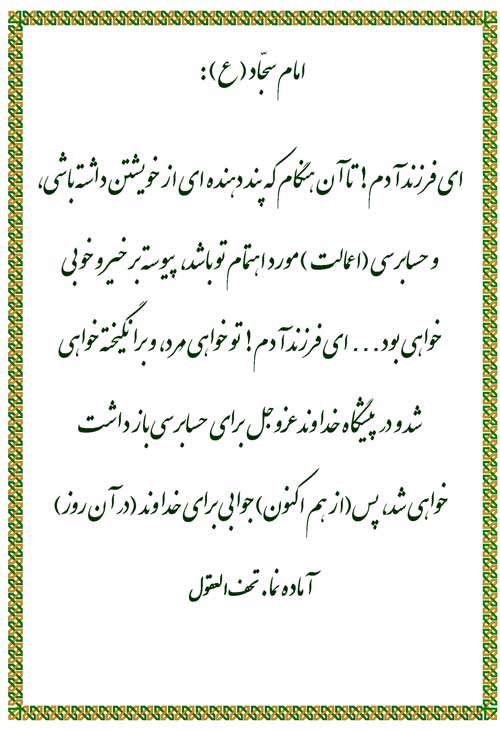 امام سجّاد (ع):
ای فرزند آدم! تا آن هنگام که پند دهنده ای از خویشتن داشته باشی،
و حسابرسی (اعمالت) مورد اهتمام تو باشد، پیوسته بر خیر و خوبی
خواهی بود... ای فرزند آدم! تو خواهی مرد، و برانگیخته خواهی
شد و در پیشگاه خداوند عزوجل برای حسابرسی باز داشت
خواهی شد، پس (از هم اکنون) جوابی برای خداوند (در آن روز)
آماده نما. تحف العقول